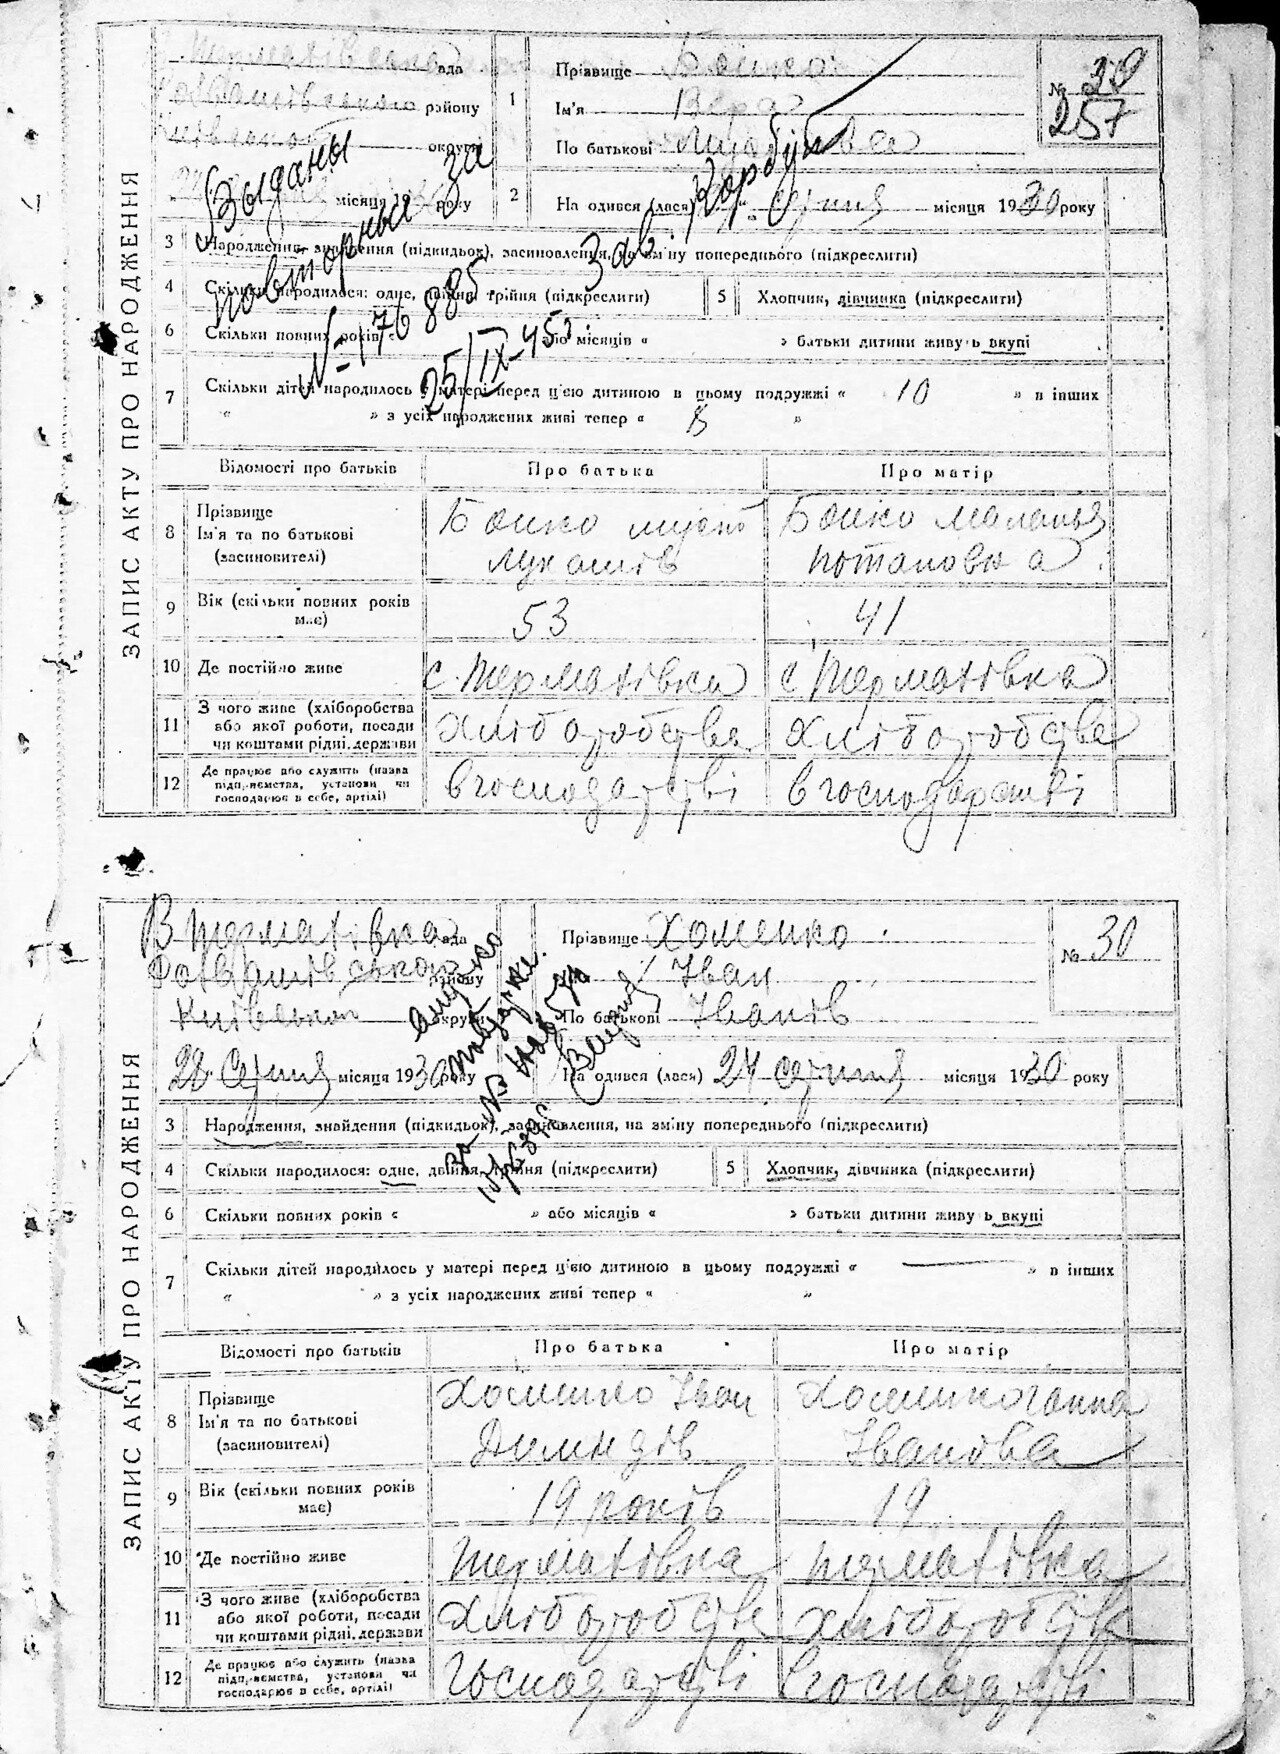 ЗАПИС АКТУ ПРО НАРОДЖЕННЯ
рада
району
округи
місяця 19 року
1
Прізвище Бойко
Ім'я Вера
По батькові
№ 30
257
2
На одився (лася) серпня місяця 1930 року
Выданы повторные за
№ 176885
25/IX-45
Зав.
3 Народження, знайдення (підкидьок), засиновлення, на зміну попереднього (підкреслити)
4 Скільки народилося: одне, двійня, трійня (підкреслити) 5 Хлопчик, дівчинка (підкреслити)
6 Скільки повних років « » або місяців « » батьки дитини живуть вкупі
7 Скільки дітей народилось у матері перед цією дитиною в цьому подружжі « 10 » в інших
« » з усіх народжених живі тепер « 8 »
Відомості про батьків Про батька Про матір
8 Прізвище Ім'я та по батькові (засиновителі)
Бойко Лукашів
Бойко Маланья Потаповна
9 Вік (скільки повних років має) 53 41
10 Де постійно живе с. Термахівка с Термахівка
11 З чого живе (хліборобства або якої роботи, посади чи коштами рідні, держави Хліборобства Хліборобства
12 Де працює або служить (назва підприємства, установи чи господарює в себе, артілі) в господарстві в господарстві
ЗАПИС АКТУ ПРО НАРОДЖЕННЯ
Термахівка рада
Розважівською району
Київської округи
28 Серпня місяця 1930 року
Прізвище Хоменко
Іван
По батькові Іванів
№ 30
На одився (лася) 24 серпня місяця 1930 року
3 Народження, знайдення (підкидьок), засиновлення, на зміну попереднього (підкреслити)
4 Скільки народилося: одне, двійня, трійня (підкреслити) 5 Хлопчик, дівчинка (підкреслити)
6 Скільки повних років « » або місяців « » батьки дитини живуть вкупі
7 Скільки дітей народилось у матері перед цією дитиною в цьому подружжі « — » в інших
« » з усіх народжених живі тепер « »
Відомості про батьків Про батька Про матір
8 Прізвище Ім'я та по батькові (засиновителі)
Хоменко Іван
Хоменко Ганна Іванова
9 Вік (скільки повних років має) 19 років 19
10 Де постійно живе Термахівка Термахівка
11 З чого живе (хліборобства або якої роботи, посади чи коштами рідні, держави Хліборобств хліборобств
12 Де працює або служить (назва підприємства, установи чи господарює в себе, артілі) Господарстві в господарстві